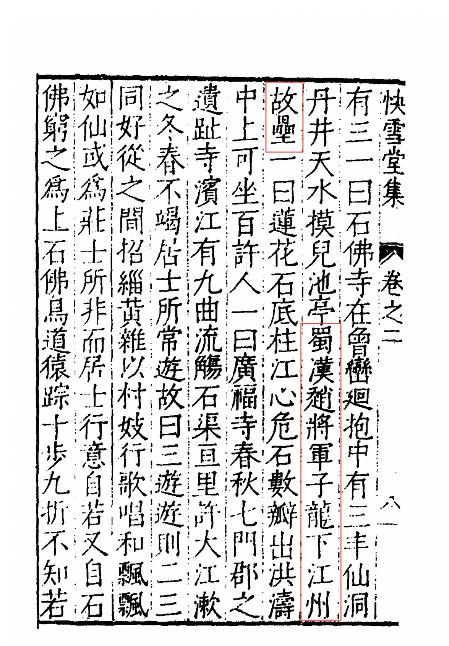 快雪堂集 卷之二 八
有三一曰石佛寺在層巒廻抱中有三丰仙洞
丹井天水模兒池亭蜀漢趙將軍子龍下江州
故壘一曰蓮花石底柱江心危石數瓣出洪濤
中上可坐百許人一曰廣福寺春秋七門郡之
遺趾寺濱江有九曲流觴石渠亘里許大江漱
之冬春不竭居士所常遊故曰三遊遊則二三
同好從之間招緇黃雜以村妓行歌唱和飄飄
如仙或為莊士所非而居士行意自若又自石
佛窮之為上石佛鳥道猿踪十步九折不知若